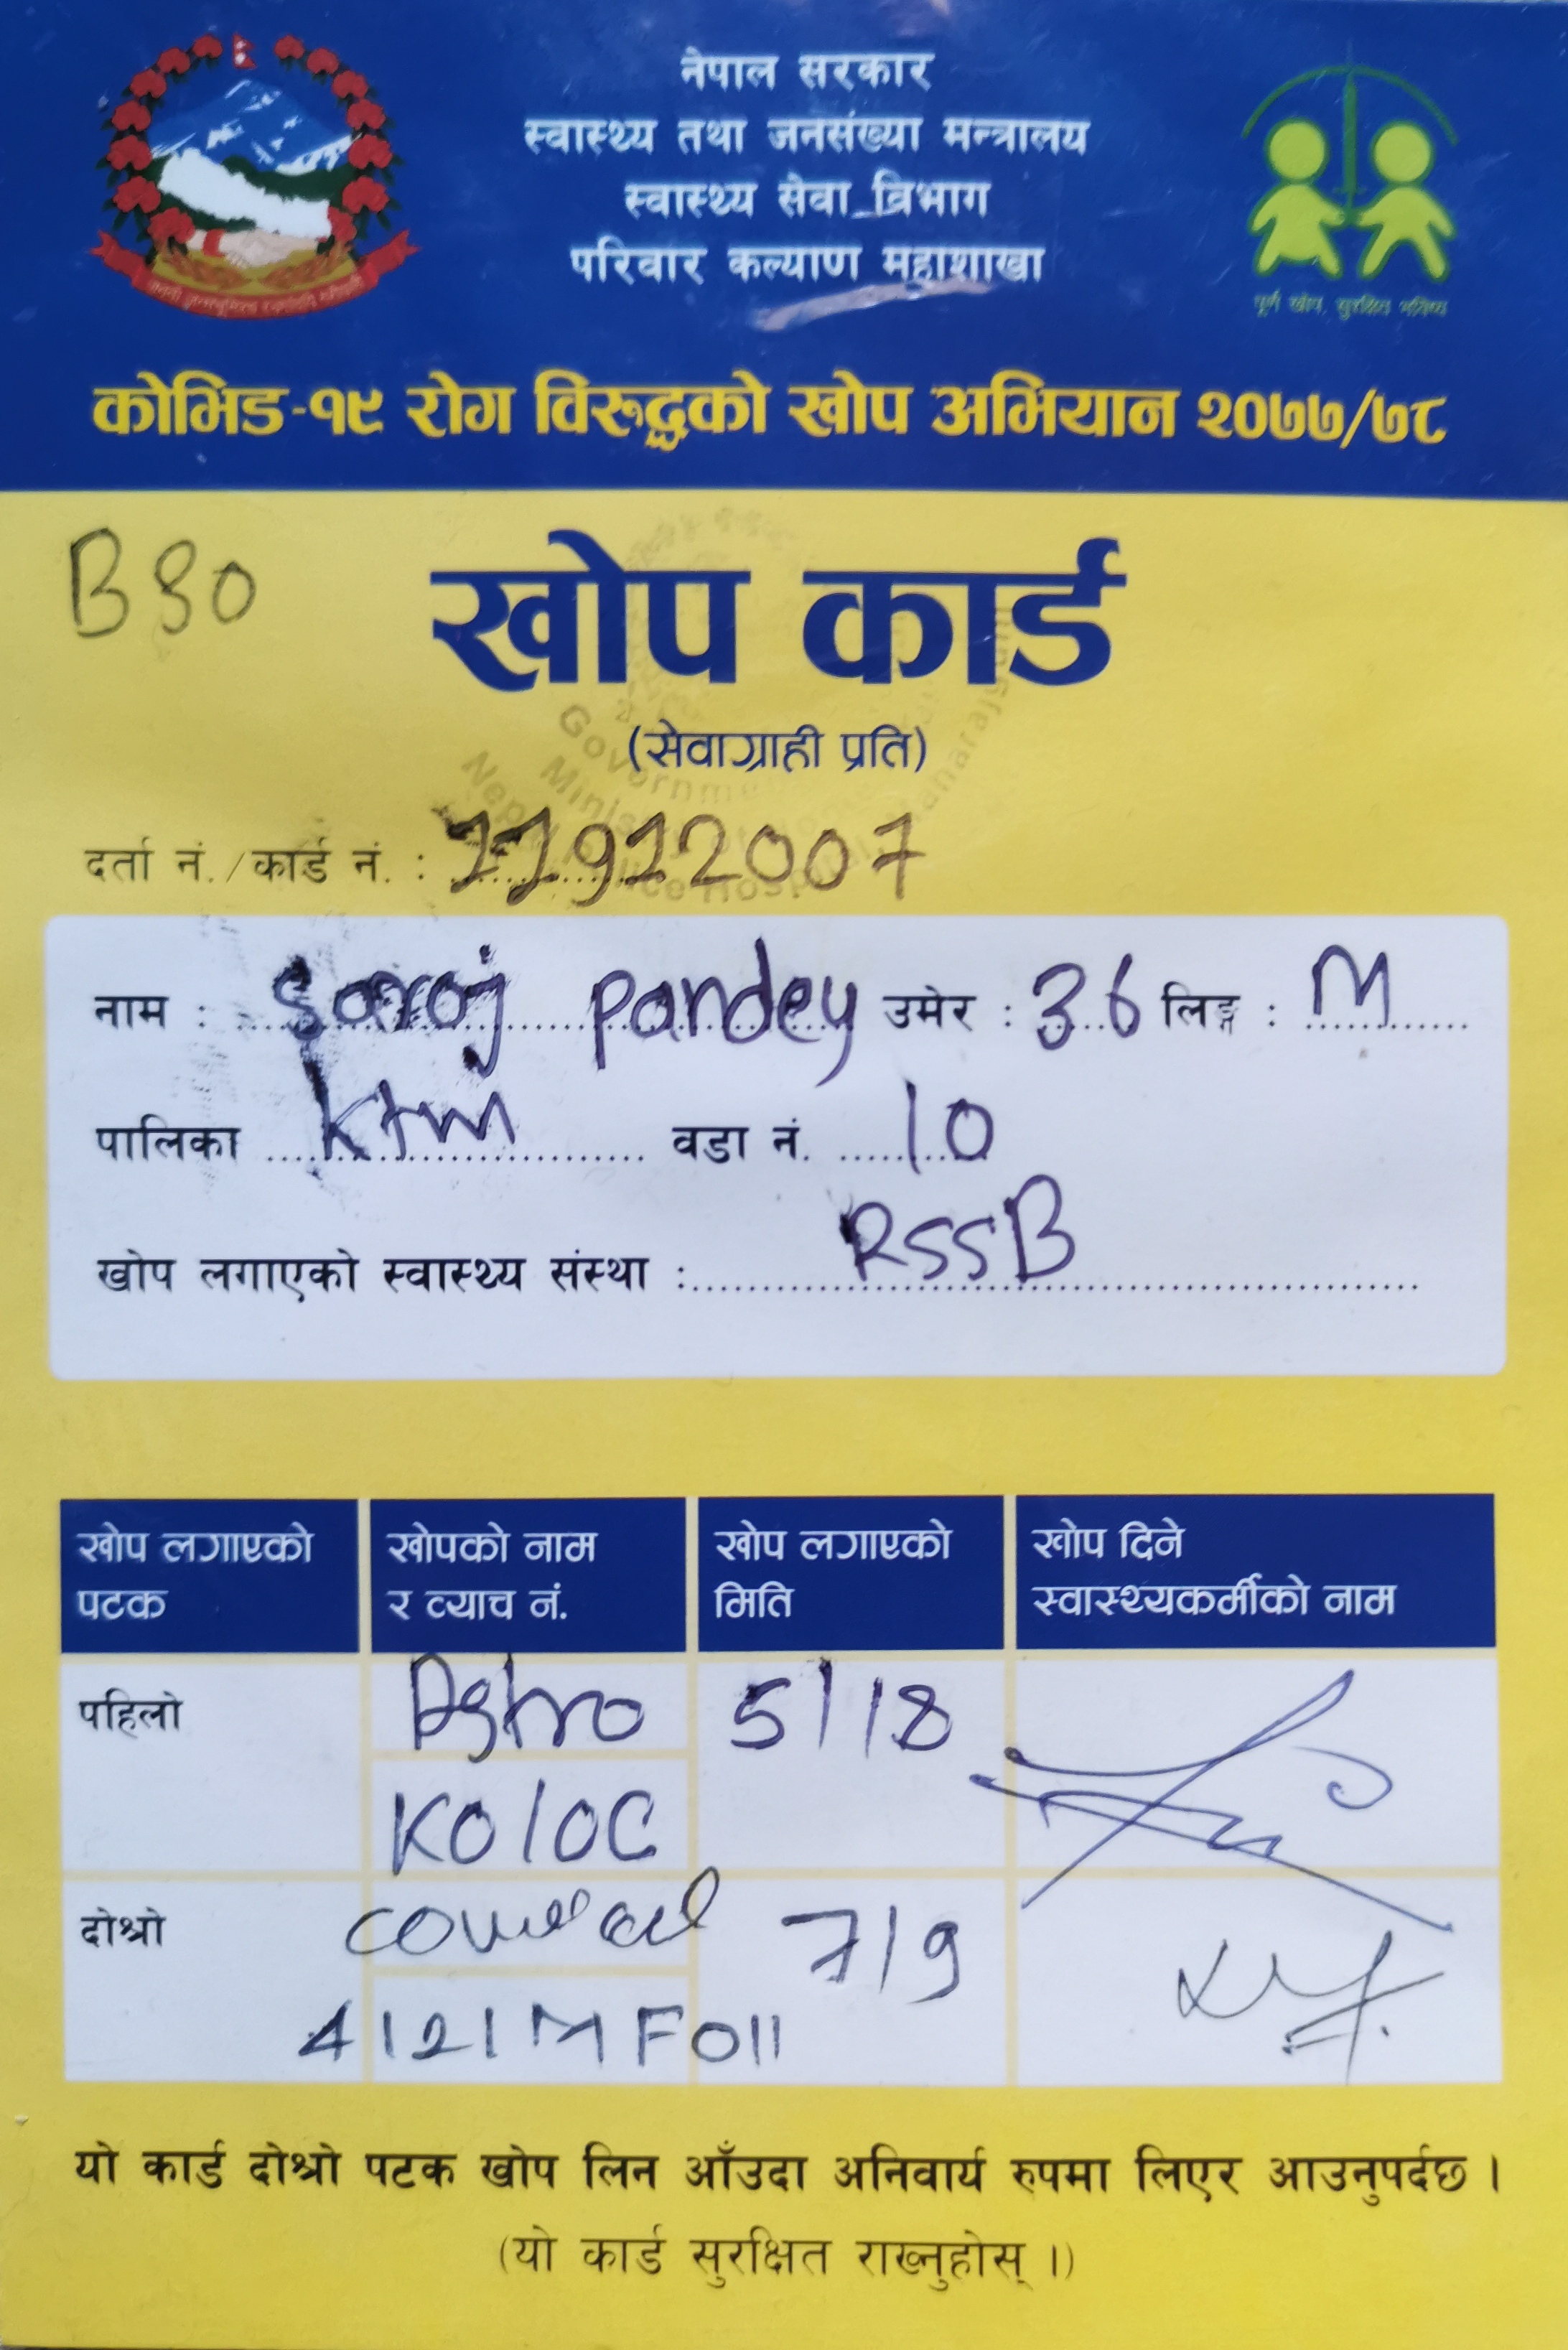 नेपाल सरकार
स्वास्थ्य तथा जनसंख्या मन्त्रालय
स्वास्थ्य सेवा विभाग
परिवार कल्याण महाशाखा
पूर्ण खोप, सुरक्षित भविष्य
कोभिड-१९ रोग विरुद्धको खोप अभियान २०७७/७८
खोप कार्ड
(सेवाग्राही प्रति)
दर्ता नं./कार्ड नं. : 22922007
नाम : Saroj Pandey उमेर : 36 लिङ्ग : M
पालिका Ktm वडा नं. 10
खोप लगाएको स्वास्थ्य संस्था : RSSB
खोप लगाएको पटक
खोपको नाम र व्याच नं.
खोप लगाएको मिति
खोप दिने स्वास्थ्यकर्मीको नाम
पहिलो 5/18
दोश्रो 7/9
4121MF011
यो कार्ड दोश्रो पटक खोप लिन आँउदा अनिवार्य रुपमा लिएर आउनुपर्दछ ।
(यो कार्ड सुरक्षित राख्नुहोस् ।)